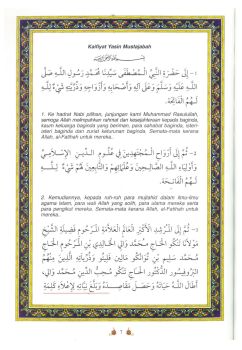 Kaifiyat Yasin Mustajabah
١- إِلَى حَضْرَةِ النَّبِيِّ الْمُصْطَفَى سَيِّدِنَا مُحَمَّدٍ رَسُولِ اللهِ صَلَّى
اللهُ عَلَيْهِ وَسَلَّمَ وَعَلَى آلِهِ وَأَصْحَابِهِ وَأَزْوَاجِهِ وَذُرِّيَّتِهِ شَيْءٌ لِلَّهِ
لَهُمُ الْفَاتِحَة.
1. Ke hadrat Nabi pilihan, junjungan kami Muhammad Rasulullah,
semoga Allah melimpahkan rahmat dan kesejahteraan kepada baginda,
kaum keluarga baginda yang beriman, para sahabat baginda, isteri-
isteri baginda dan zuriat keturunan baginda. Semata-mata kerana
Allah, al-Fatihah untuk mereka.
٢- ثُمَّ إِلَى أَرْوَاحِ الْمُجْتَهِدِينَ فِي عُلُومِ الدِّينِ الإِسْلَامِيِّ
وَأَوْلِيَاءِ اللهِ الصَّالِحِينَ وَعُلَمَائِهِمْ وَالتَّابِعِينَ لَهُمْ شَيْءٌ لِلَّهِ
لَهُمُ الْفَاتِحَة.
2. Kemudiannya, kepada ruh-ruh para mujtahid dalam ilmu-ilmu
agama Islam, para wali Allah yang solih, para ulama mereka serta
para pengikut mereka. Semata-mata kerana Allah, al-Fatihah untuk
mereka.
٣- ثُمَّ إِلَى الْمُرْشِدِ الأَكْبَرِ الْعَالِمِ الْعَلَّامَةِ الْمَرْحُومِ فَضِيلَةِ الشَّيْخِ
مَوْلَانَا تنكو الْحَاجِّ مُحَمَّد وَإِلَى الْوَالِدَيِّ بن الْمَرْحُومِ الْحَاجِّ
مُحَمَّد سليم بن
الْبروفيسور الدُّكْتُور الْحَاجِّ تنكو مُحِبُّ الدِّينِ مُحَمَّد وَالِي،
أَطَالَ اللهُ حَيَاتَهُ وَحَصَلَ مَقَاصِدَهُ وَبَلَّغَ نِيَّاتِهِ لإِعْلَاءِ كَلِمَةِ
1